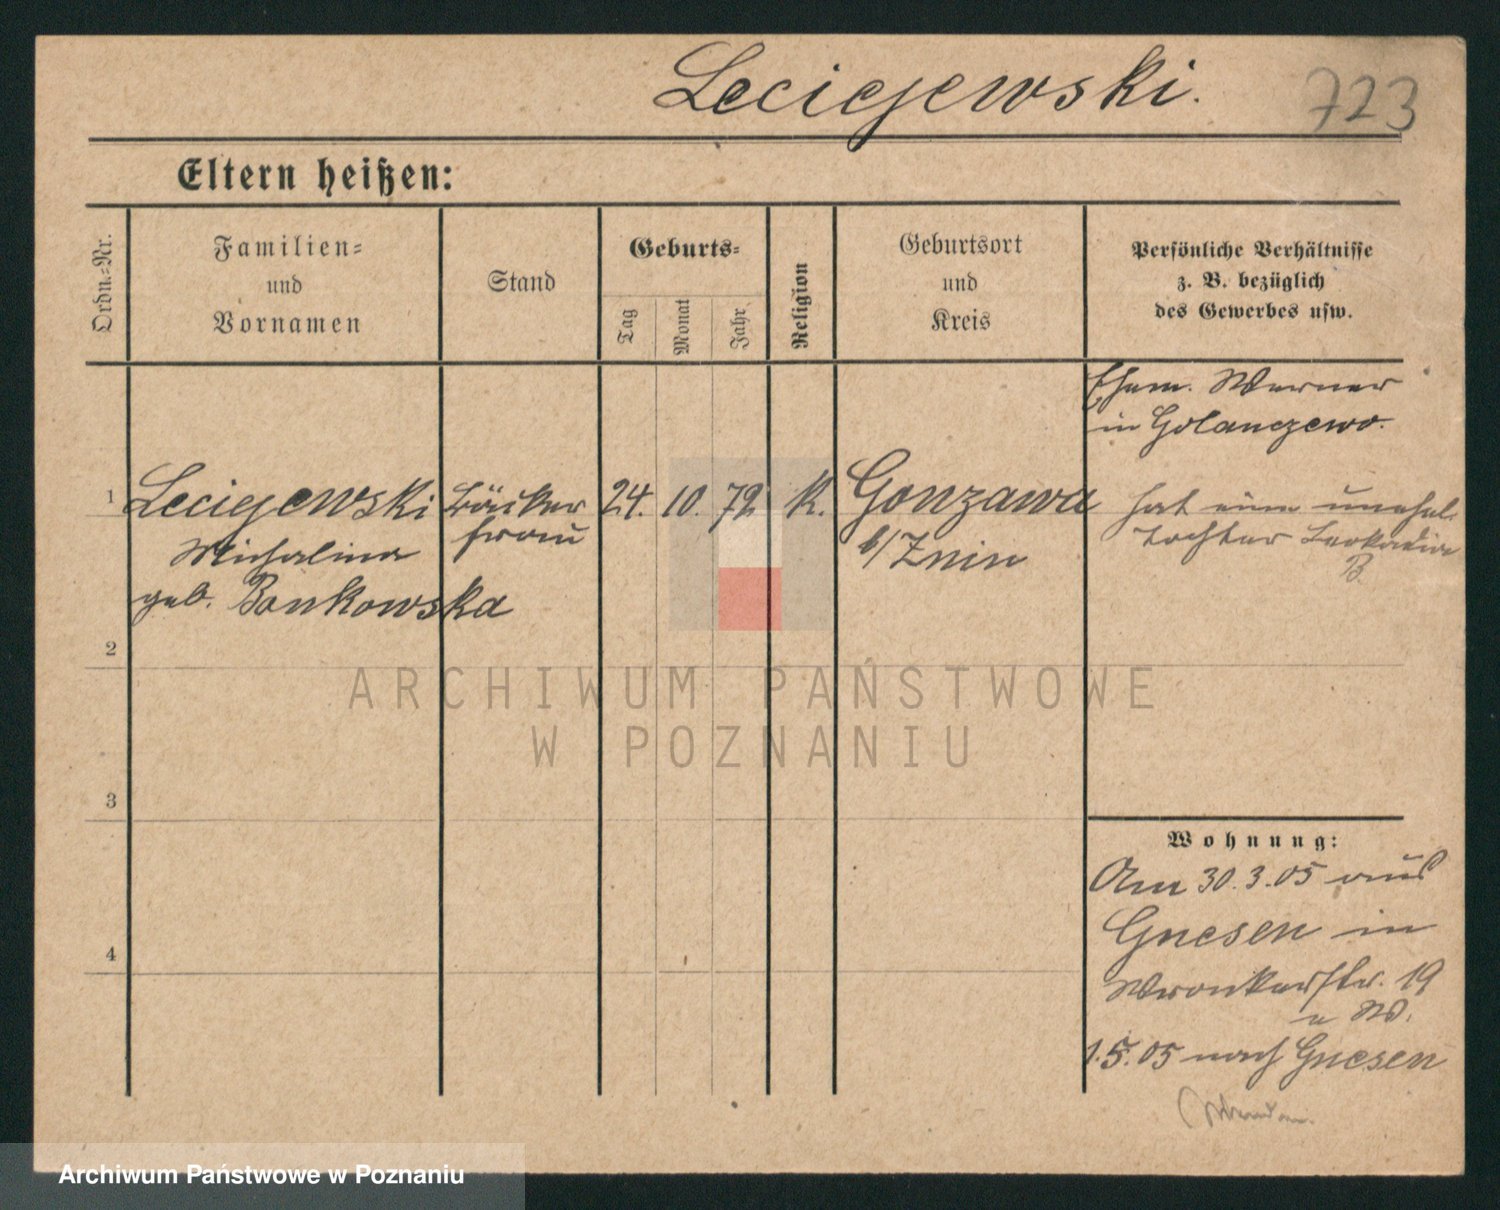 Leciejewski.
723
Eltern heißen:
Ordn.=Nr.
Familien=
und
Vornamen
Stand
Geburts=
Tag
Monat
Jahr
Religion
Geburtsort
und
Kreis
Persönliche Verhältnisse
z. B. bezüglich
des Gewerbes usw.
Ehem. Werner
in Golanczewo.
1
Leciejewski
Michalina
geb. Bankowska
Bäcker
frau
24. 10. 72
K.
Gonzawa
b/Znin
hat eine unehel.
Tochter Leokadia
B.
2
3
4
Wohnung:
Am 30.3.05 aus
Gnesen in
Wronkerstr. 19
W.
1.5.05 nach Gnesen
ARCHIWUM PAŃSTWOWE
W POZNANIU
Archiwum Państwowe w Poznaniu